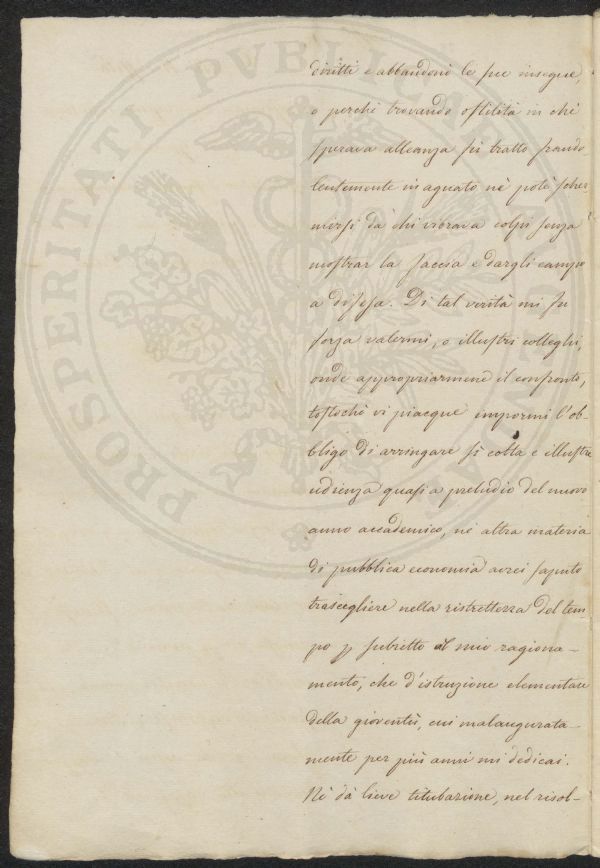 diritti e abbandonò le sue insegne,
o perchè trovando ostilità in chi
sperava alleanza fù tratto fraudo
lentemente in aguato nè potè scher
mirsi dà chi vibrava colpi senza
mostrar la faccia e dargli campo
a difesa. Di tal verità mi fu
forza valermi, o illustri colleghi,
onde appropriarmene il confronto,
tostochè vi piacque impormi l'ob-
bligo di arringare sì colta e illustre
udienza quasi a preludio del nuovo
anno accademico, nè altra materia
di pubblica economia avrei saputo
trascegliere nella ristrettezza del tem
po p subietto al mio ragiona-
mento, che d'istruzione elementare
della gioventù, cui malaugurata-
mente per più anni mi dedicai.
Nè dà lieve titubazione, nel risol-
PROSPERITATI PVBLICAE AVGENDAE